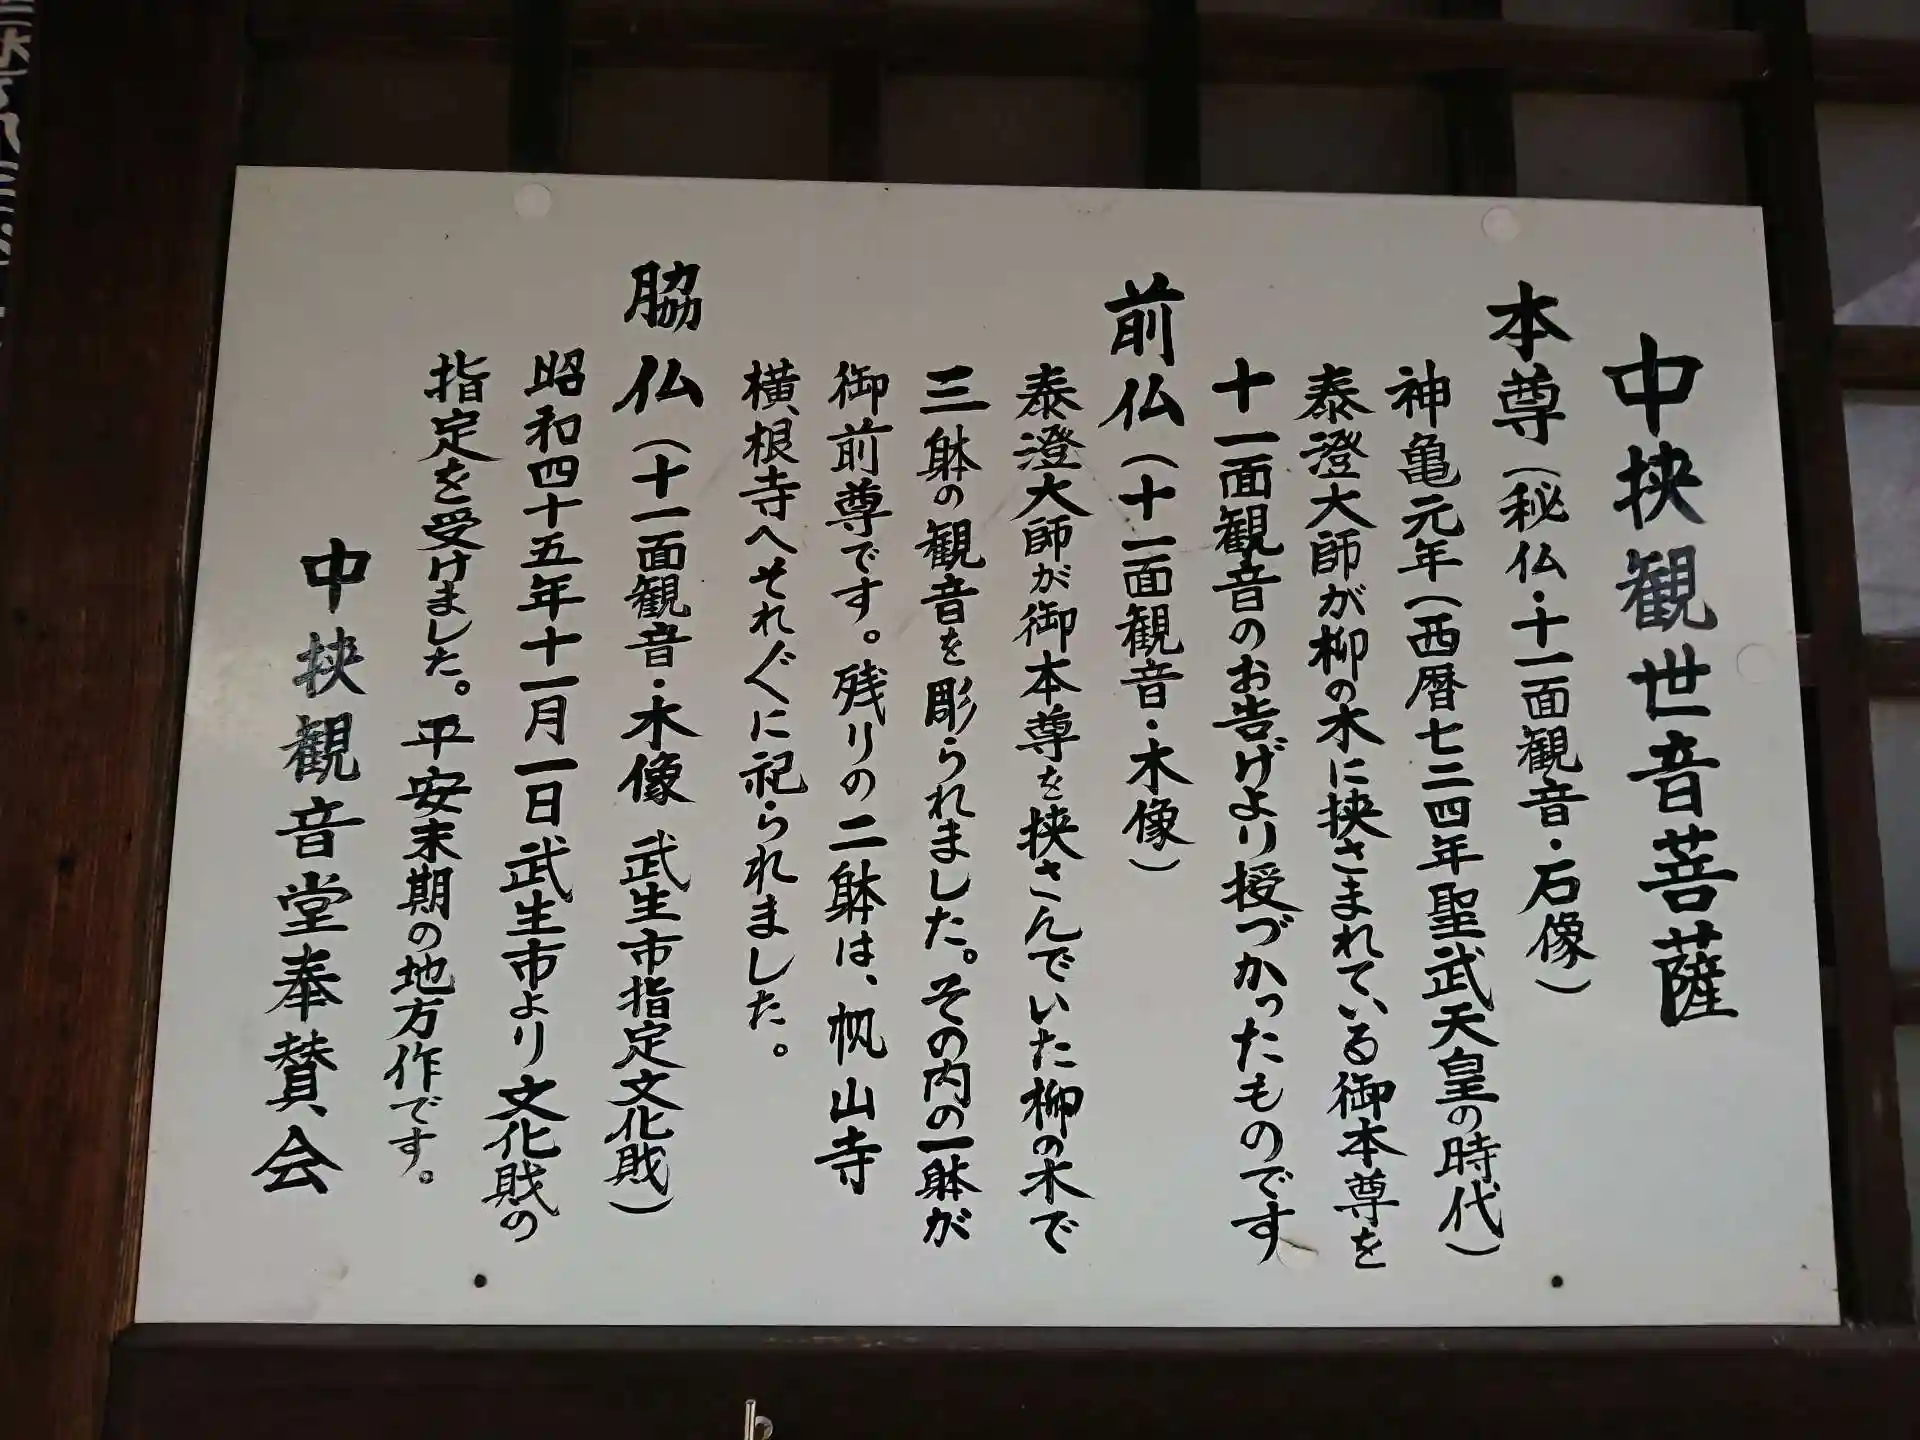 中挟観世音菩薩
本尊（秘仏・十一面観音・石像）
神亀元年（西暦七二四年聖武天皇の時代）
泰澄大師が柳の木に挟さまれている御本尊を
十一面観音のお告げより授づかったものです
前仏（十一面観音・木像）
泰澄大師が御本尊を挟さんでいた柳の木で
三躰の観音を彫られました。その内の一躰が
御前尊です。残りの二躰は、帆山寺
横根寺へそれ〴〵に祀られました。
脇仏（十一面観音・木像 武生市指定文化財）
昭和四十五年十一月一日武生市より文化財の
指定を受けました。平安末期の地方作です。
中挟観音堂奉賛会